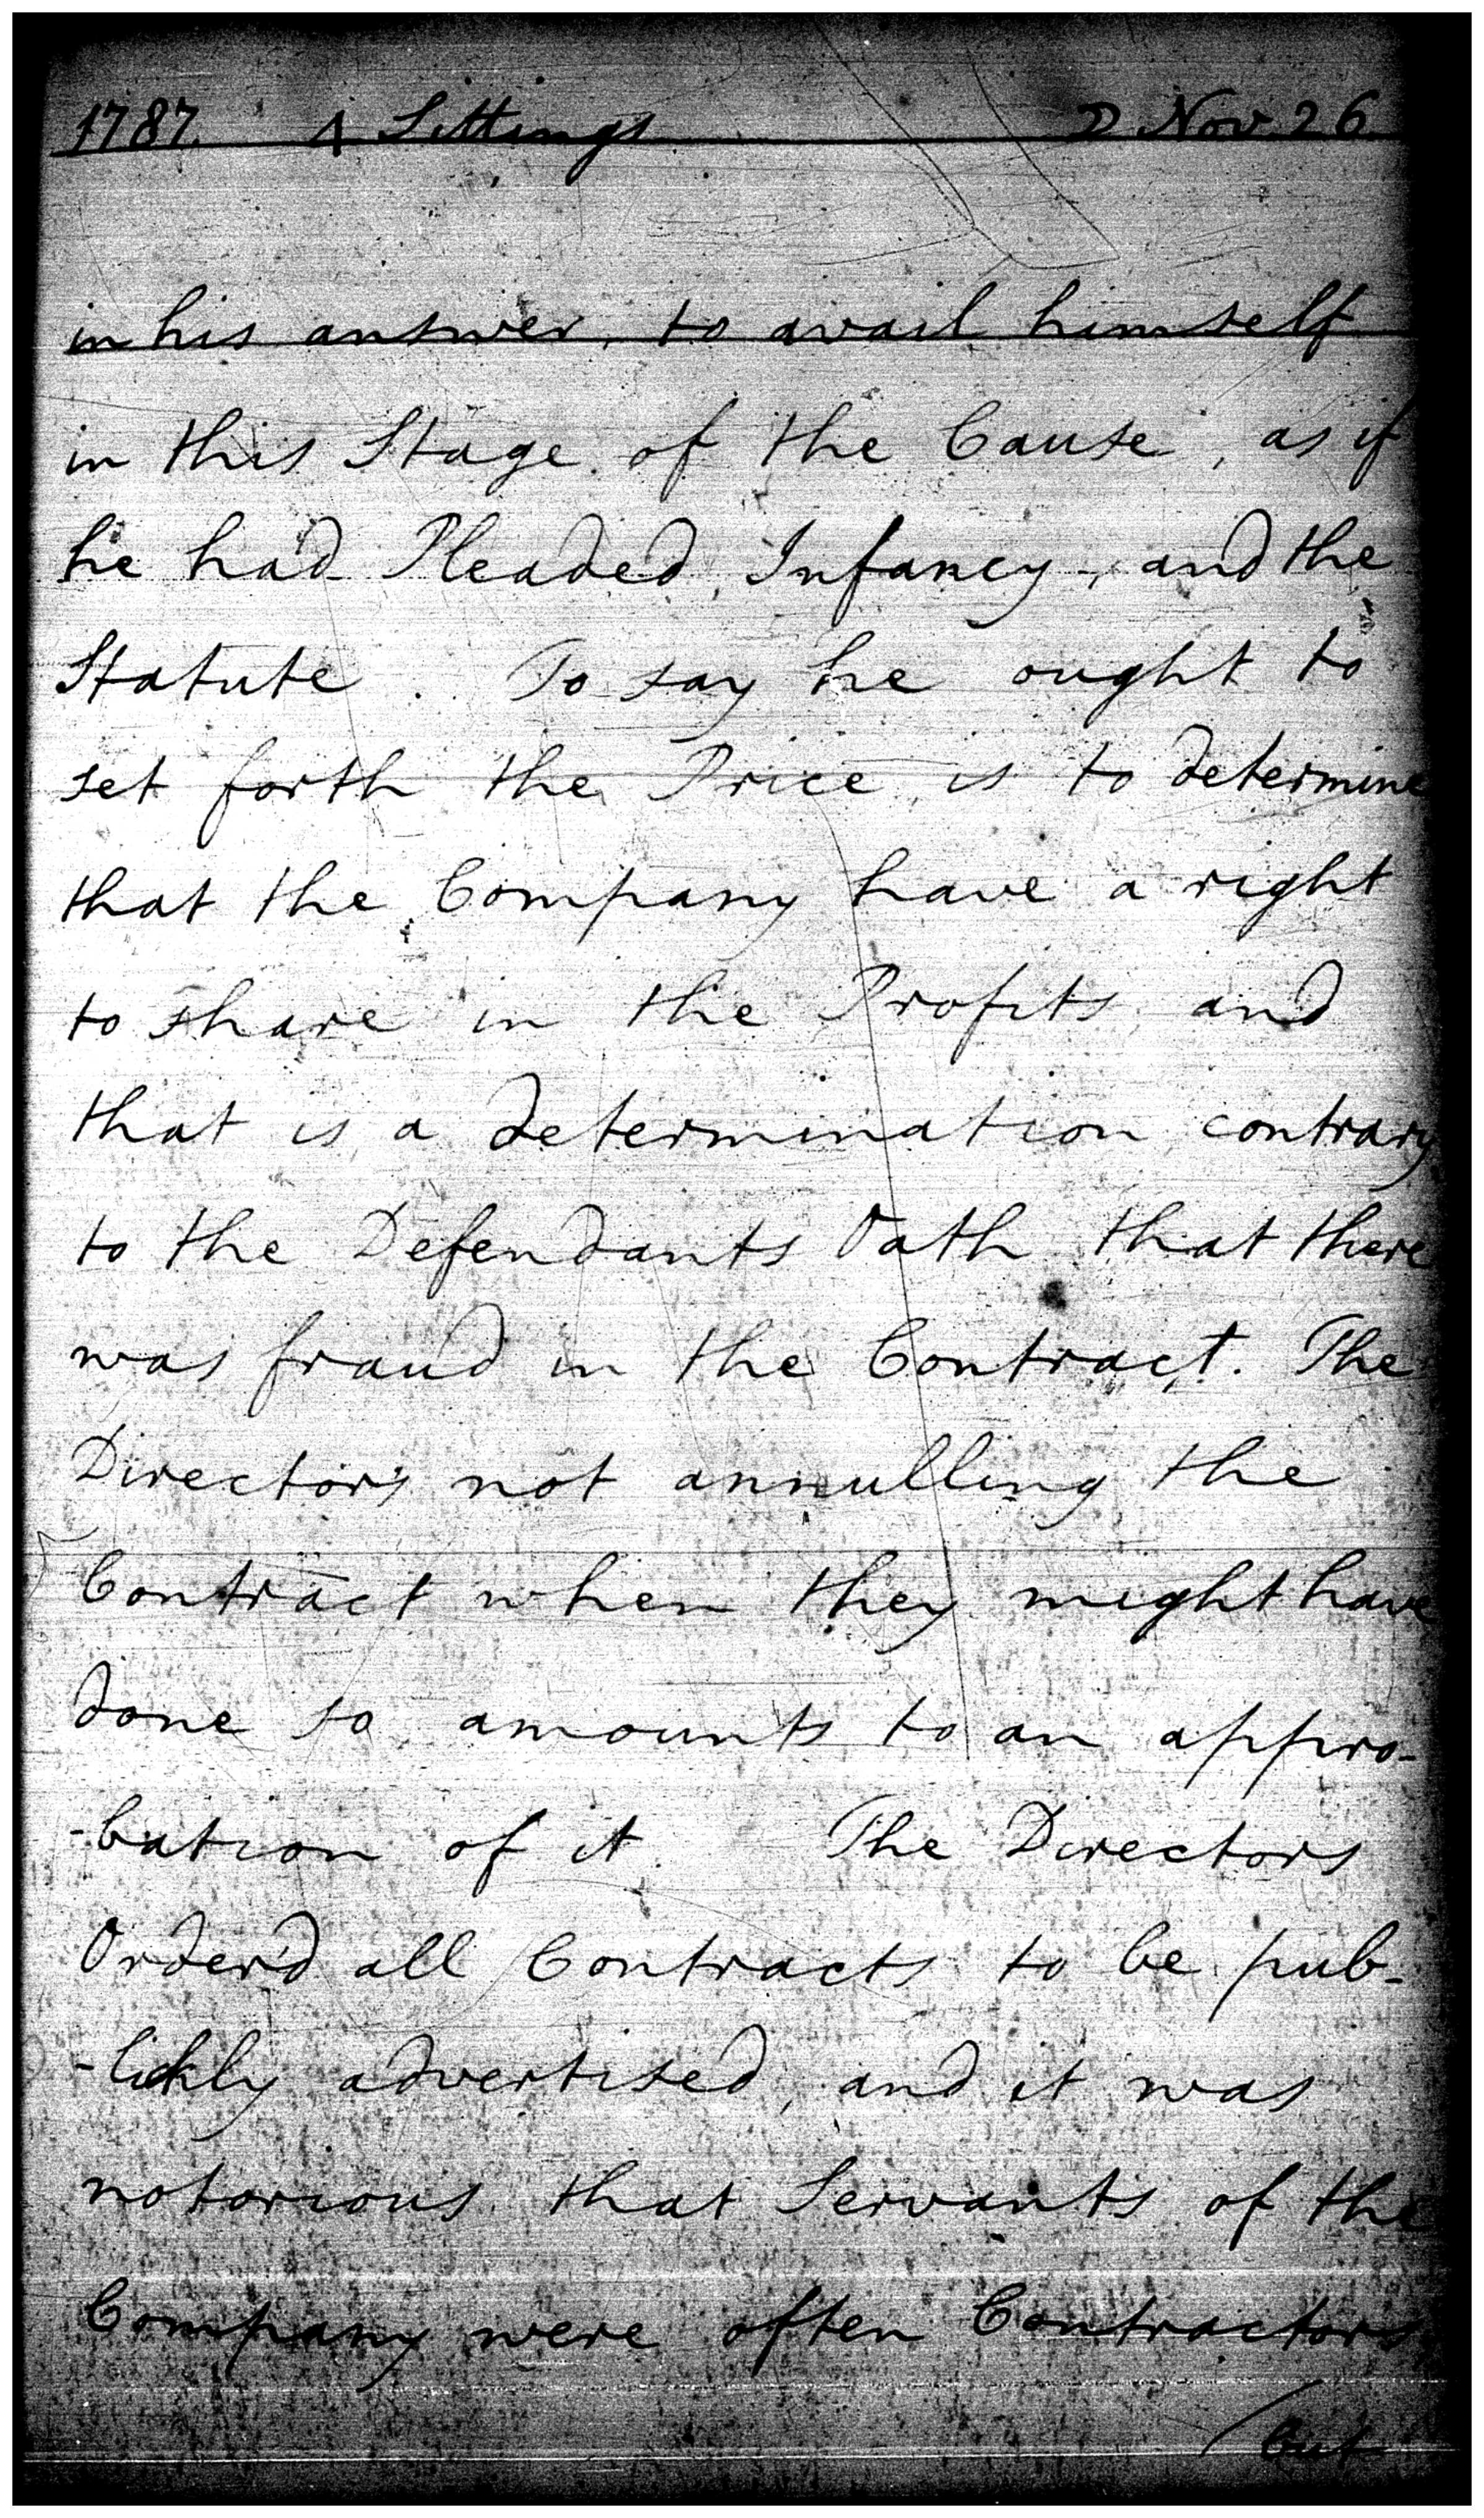 1787. 4 Sittings D Nov 26
in his answer, to avail himself
in this Stage of the Cause, as if
he had Pleaded Infancy, and the
Statute. To say he ought to
set forth the Price is to determine
that the Company have a right
to share in the Profits and
that is a determination contrary
to the Defendants Oath that there
was fraud in the Contract. The
Directors not annulling the
Contract when they might have
done so amounts to an appro-
-bation of it. The Directors
Order'd all Contracts to be pub-
-lickly advertised, and it was
notorious that Servants of the
Company were often Contractors
but